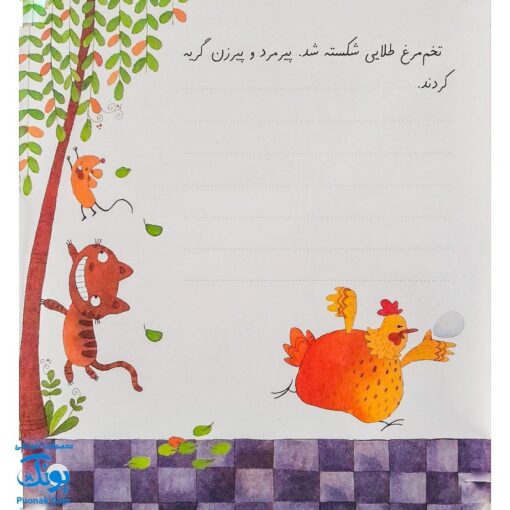 تخم‌مرغ طلایی شکسته شد. پیرمرد و پیرزن گریه
کردند.
پونک
Puonak.com